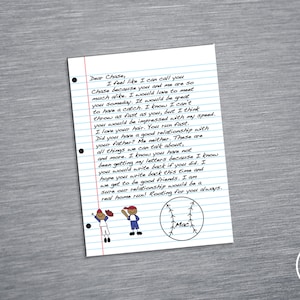 Dear Chase,
I feel like I can call you
Chase because you and me are so
much alike. I would love to meet
you someday. It would be great
to have a catch. I know I can't
throw as fast as you, but I think
you would be impressed with my speed.
I love your hair. You run fast.
Did you have a good relationship with
your father? Me neither. These are
all things we can talk about,
and more. I know you have not
been getting my letters because I know
you would write back if you did. I
hope you write back this time and
we get to be good friends. I am
sure our relationship would be a
real home run! Rooting for you always,
Mac